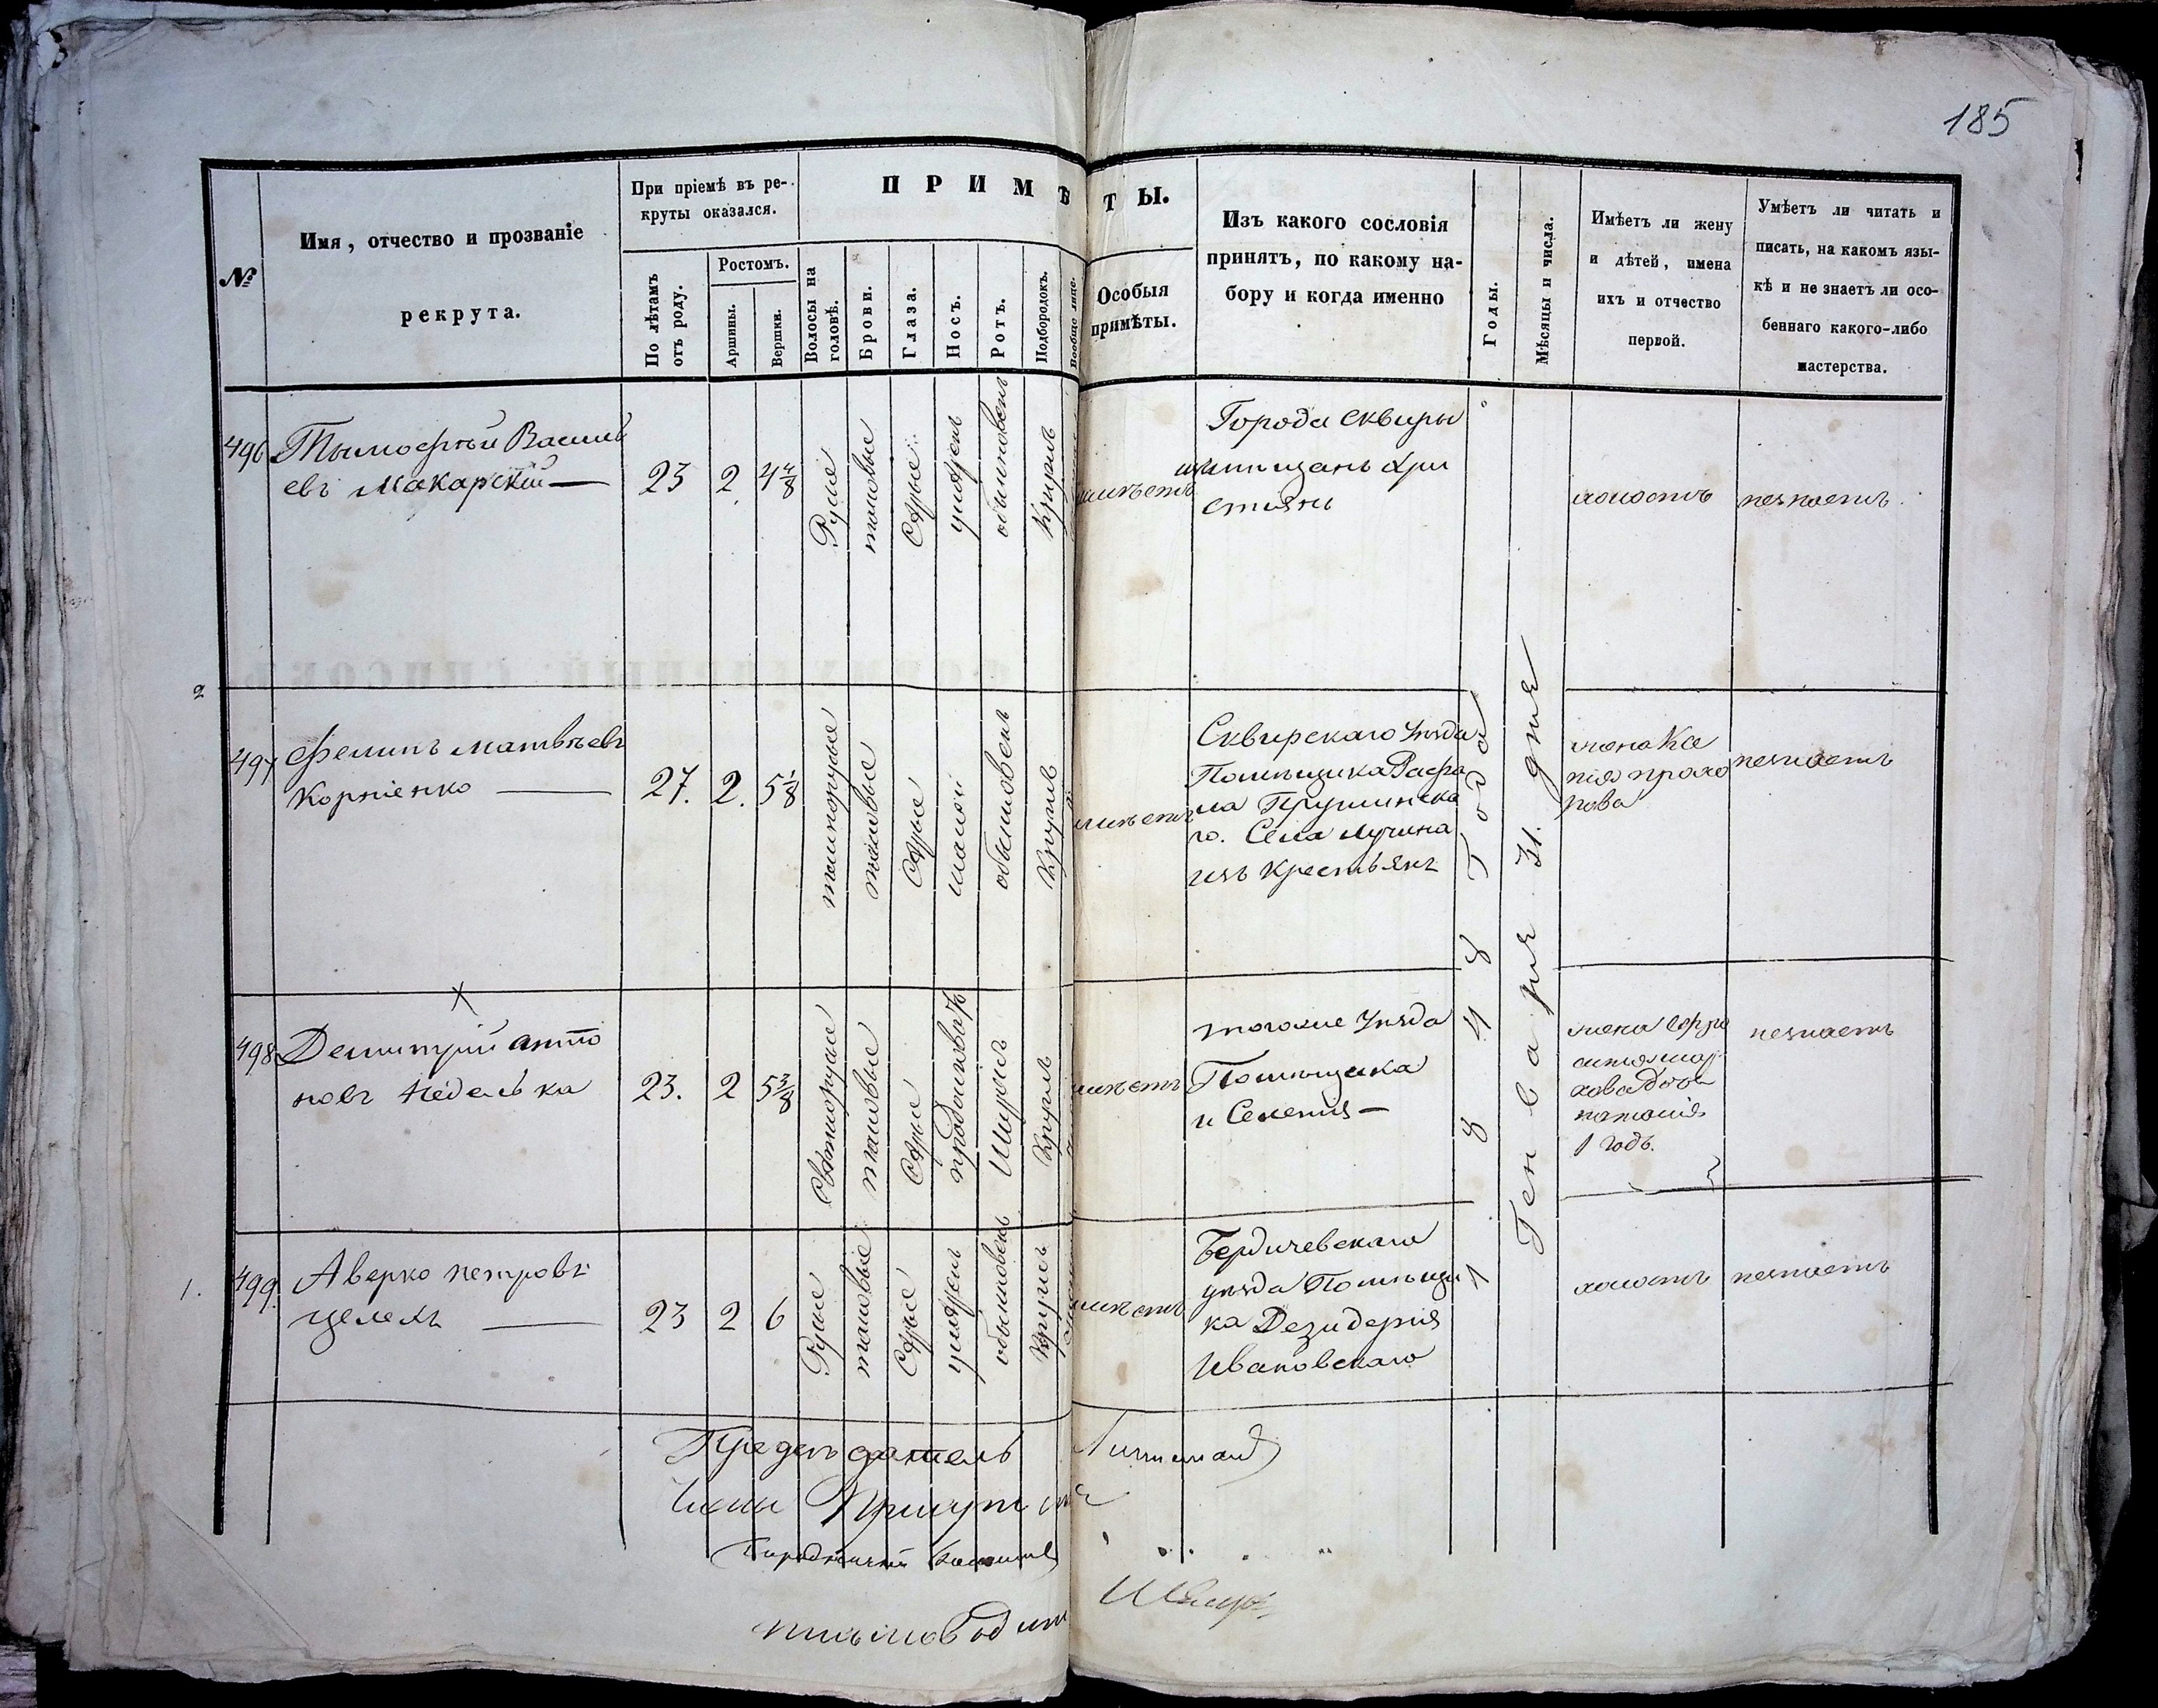 185
№
Имя, отчество и прозваніе
рекрута.
При пріемѣ въ ре-
круты оказался.
По лѣтамъ
отъ роду.
Ростомъ.
Аршины.
Вершки.
ПРИМѢТЫ.
Волосы на
головѣ.
Брови.
Глаза.
Носъ.
Ротъ.
Подбородокъ.
Вообще лице.
Особыя
примѣты.
Изъ какого сословія
принятъ, по какому на-
бору и когда именно
Годы.
Мѣсяцы и числа.
Имѣетъ ли жену
и дѣтей, имена
ихъ и отчество
первой.
Умѣетъ ли читать и
писать, на какомъ язы-
кѣ и не знаетъ ли осо-
беннаго какого-либо
мастерства.
496
Тымофѣй Василь
евъ Макарскій —
23
2
4 4/8
Русые
таковые
Сѣрые
умѣрен
обыкновенъ
Круглъ
Города Сквиры
Христіянъ
холостъ
незнаетъ
2
497
Филипъ Матвѣевъ
Корніенко —
27.
2.
5 1/8
темнорусые
таковые
Сѣрые
малой
обыкновен
Круглъ
Сквирскаго Уѣзда
Помѣщика Рафа
ла Прушинска
го. Села Лучина
изъ Крестьянъ
жена Ксе
нія Прохо
рова
незнаетъ
498
Демитрій Анто
новъ Неделька
23.
2
5 3/8
Свѣтлорусые
таковые
Сѣрые
продолговатъ
Широк
Круглъ
тогоже Уѣзда
Помѣщика
и Селенія —
жена Евфро
синія
дочь
наталія
1 годъ.
незнаетъ
1.
499.
Аверко Петровъ
Целехъ —
23
2
6
Русые
таковые
Сѣрые
умѣрен
обыкновенъ
Круглъ
Бердичевскаго
уѣзда Помѣщи
ка Дезидерія
Ивановскаго
холостъ
незнаетъ
1848 Года
Генваря 31. дня
Предсѣдатель
Члены Присутствія
Городничий
письмоводитель